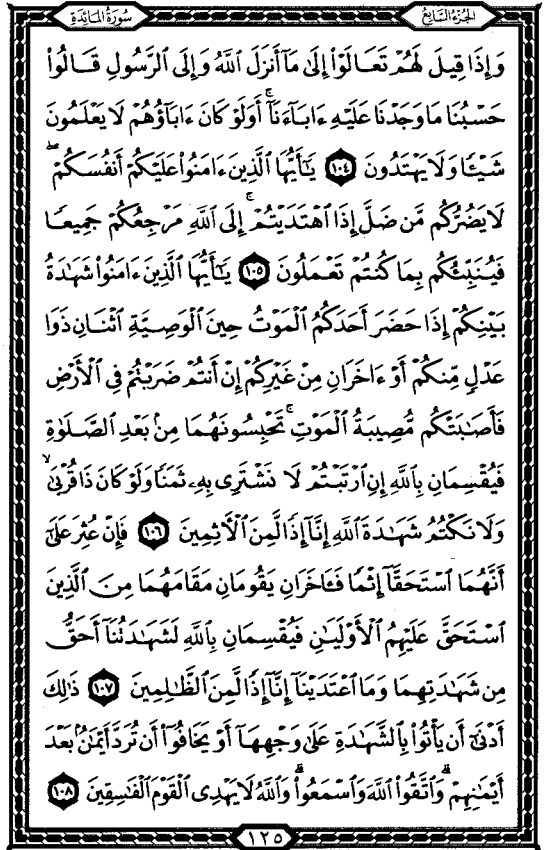 الجزء السابع
سورة المائدة
وَإِذَا قِيلَ لَهُمْ تَعَالَوْاْ إِلَىٰ مَآ أَنزَلَ ٱللَّهُ وَإِلَى ٱلرَّسُولِ قَالُواْ
حَسْبُنَا مَا وَجَدْنَا عَلَيْهِ ءَابَآءَنَآ ۚ أَوَلَوْ كَانَ ءَابَآؤُهُمْ لَا يَعْلَمُونَ
شَيْـًٔا وَلَا يَهْتَدُونَ ١٠٤ يَـٰٓأَيُّهَا ٱلَّذِينَ ءَامَنُواْ عَلَيْكُمْ أَنفُسَكُمْ ۖ
لَا يَضُرُّكُم مَّن ضَلَّ إِذَا ٱهْتَدَيْتُمْ ۚ إِلَى ٱللَّهِ مَرْجِعُكُمْ جَمِيعًا
فَيُنَبِّئُكُم بِمَا كُنتُمْ تَعْمَلُونَ ١٠٥ يَـٰٓأَيُّهَا ٱلَّذِينَ ءَامَنُواْ شَهَـٰدَةُ
بَيْنِكُمْ إِذَا حَضَرَ أَحَدَكُمُ ٱلْمَوْتُ حِينَ ٱلْوَصِيَّةِ ٱثْنَانِ ذَوَا
عَدْلٍ مِّنكُمْ أَوْ ءَاخَرَانِ مِنْ غَيْرِكُمْ إِنْ أَنتُمْ ضَرَبْتُمْ فِى ٱلْأَرْضِ
فَأَصَـٰبَتْكُم مُّصِيبَةُ ٱلْمَوْتِ ۚ تَحْبِسُونَهُمَا مِنۢ بَعْدِ ٱلصَّلَوٰةِ
فَيُقْسِمَانِ بِٱللَّهِ إِنِ ٱرْتَبْتُمْ لَا نَشْتَرِى بِهِۦ ثَمَنًا وَلَوْ كَانَ ذَا قُرْبَىٰ ۙ
وَلَا نَكْتُمُ شَهَـٰدَةَ ٱللَّهِ إِنَّآ إِذًا لَّمِنَ ٱلْـَٔاثِمِينَ ١٠٦ فَإِنْ عُثِرَ عَلَىٰٓ
أَنَّهُمَا ٱسْتَحَقَّآ إِثْمًا فَـَٔاخَرَانِ يَقُومَانِ مَقَامَهُمَا مِنَ ٱلَّذِينَ
ٱسْتَحَقَّ عَلَيْهِمُ ٱلْأَوْلَيَـٰنِ فَيُقْسِمَانِ بِٱللَّهِ لَشَهَـٰدَتُنَآ أَحَقُّ
مِن شَهَـٰدَتِهِمَا وَمَا ٱعْتَدَيْنَآ إِنَّآ إِذًا لَّمِنَ ٱلظَّـٰلِمِينَ ١٠٧ ذَٰلِكَ
أَدْنَىٰٓ أَن يَأْتُواْ بِٱلشَّهَـٰدَةِ عَلَىٰ وَجْهِهَآ أَوْ يَخَافُوٓاْ أَن تُرَدَّ أَيْمَـٰنٌۢ بَعْدَ
أَيْمَـٰنِهِمْ ۗ وَٱتَّقُواْ ٱللَّهَ وَٱسْمَعُواْ ۗ وَٱللَّهُ لَا يَهْدِى ٱلْقَوْمَ ٱلْفَـٰسِقِينَ ١٠٨
١٢٥